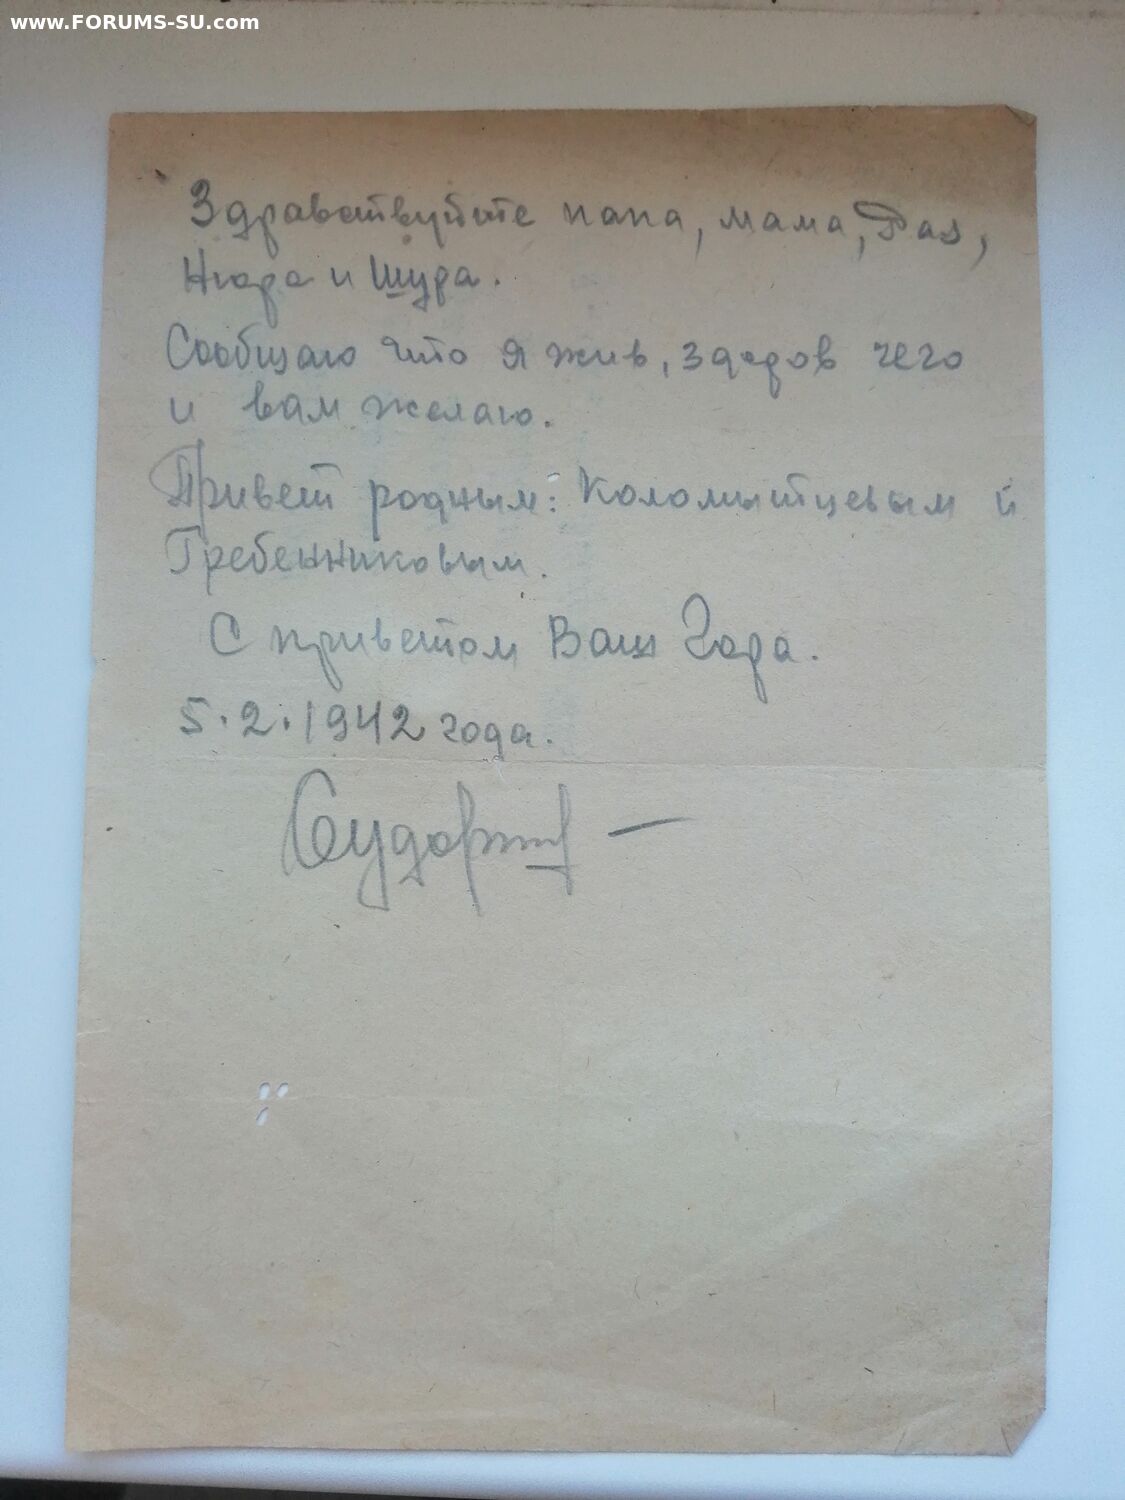 www.FORUMS-SU.com
Здравствуйте папа, мама, Рая,
Нюра и Шура.
Сообщаю что я жив, здоров чего
и вам желаю.
Привет родным: Коломытцевым и
Гребенниковым.
С приветом Ваш Жора.
5.2.1942 года.